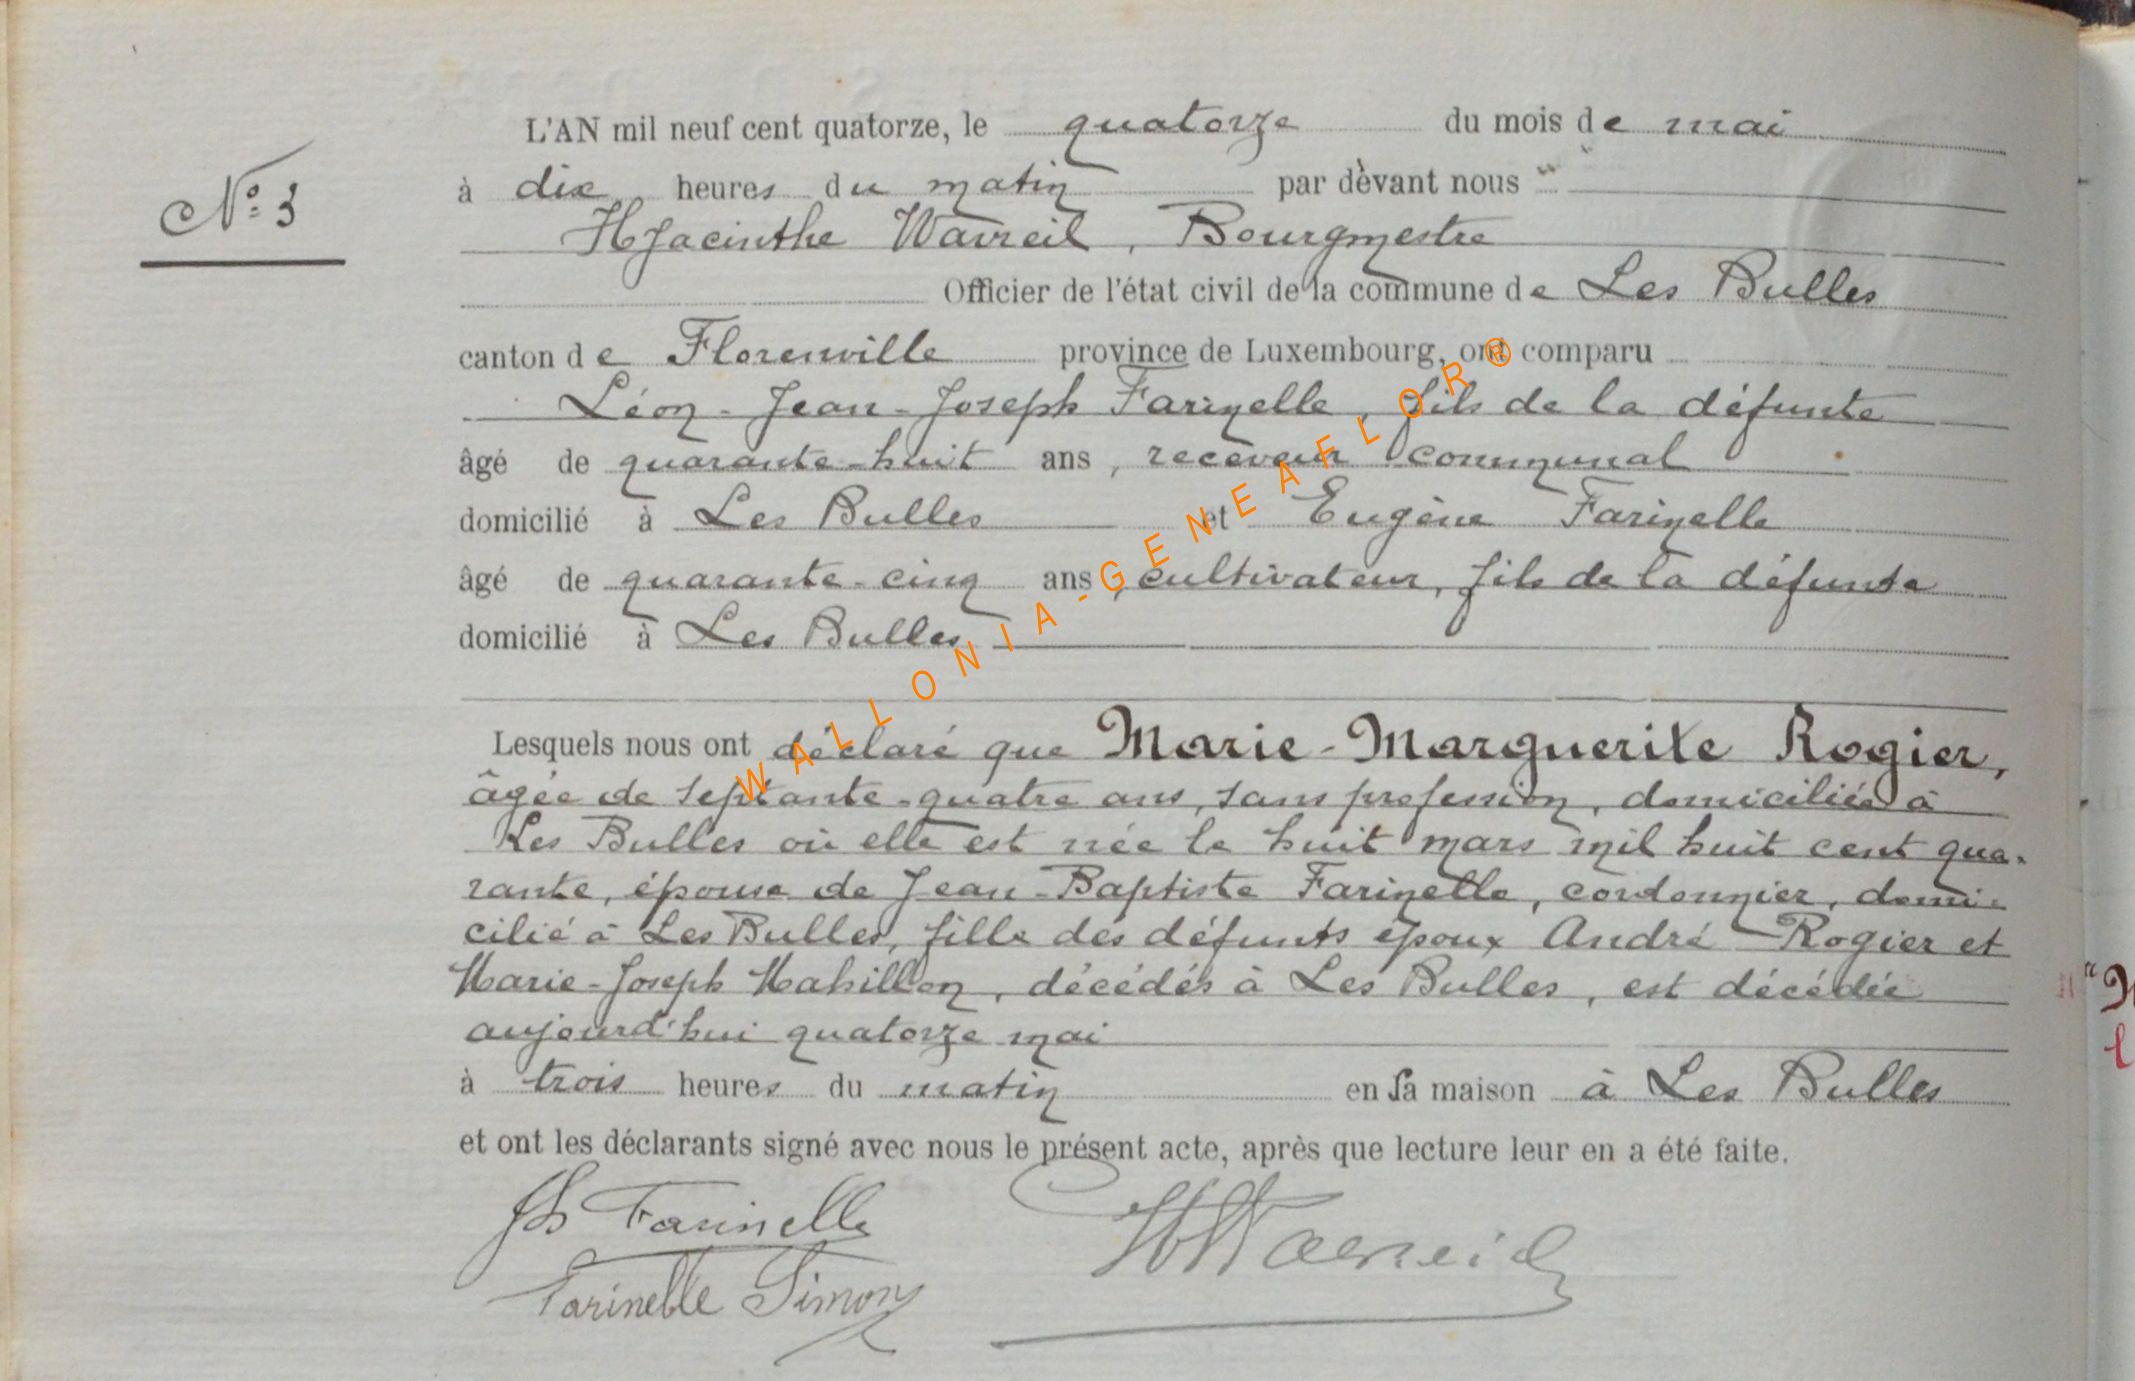 N° 3
L'AN mil neuf cent quatorze, le quatorze du mois de mai
à dix heures du matin par dèvant nous
Hyacinthe Wavreil, Bourgmestre
Officier de l'état civil de la commune de Les Bulles
canton de Florenville province de Luxembourg, ont comparu
Léon-Jean-Joseph Farinelle, fils de la défunte
âgé de quarante-huit ans, receveur communal
domicilié à Les Bulles et Eugène Farinelle
âgé de quarante-cinq ans, cultivateur, fils de la défunte
domicilié à Les Bulles
Lesquels nous ont déclaré que Marie-Marguerite Rogier,
âgée de septante-quatre ans, sans profession, domiciliée à
Les Bulles où elle est née le huit mars mil huit cent qua-
rante, épouse de Jean-Baptiste Farinelle, cordonnier, domi-
cilié à Les Bulles, fille des défunts époux André Rogier et
Marie-Joseph Mahillon, décédés à Les Bulles, est décédée
aujourd'hui quatorze mai
à trois heures du matin en sa maison à Les Bulles
et ont les déclarants signé avec nous le présent acte, après que lecture leur en a été faite.
Farinelle HWavreil
Farinelle Simon
WALLONIA-GENEAFLOR®